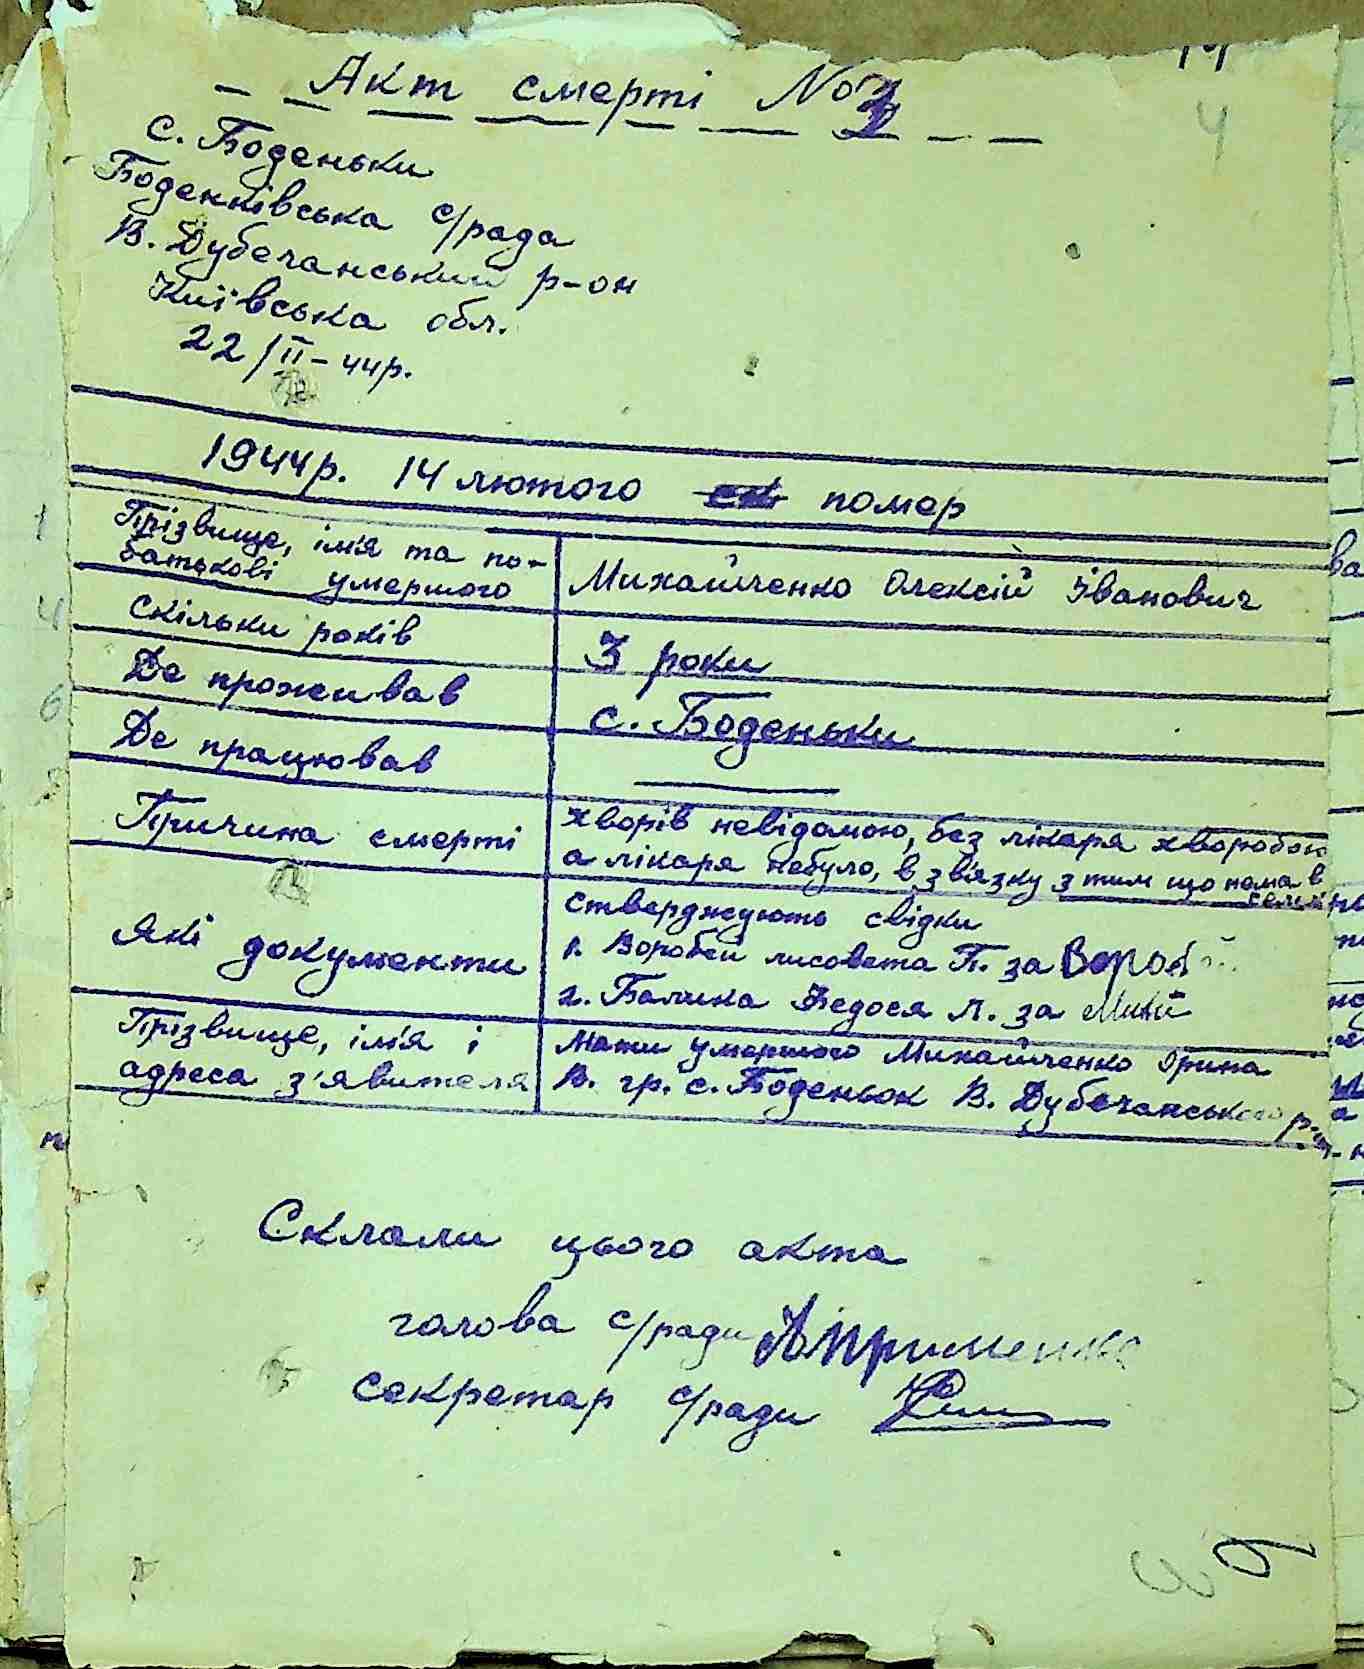 Акт смерті №
4
с. Боденьки
Боденківська с/рада
В. Дубечанський р-он
Київська обл.
22/II-44р.
1944р. 14 лютого помер
Прізвище, ім'я та по-
батькові умершого
Михайленко Олексій Іванович
Скільки років
3 роки
Де проживав
с. Боденьки
Де працював
Причина смерті
хворів невідомою, без лікаря хворобою
а лікаря небуло, в звязку з тим що нема в
селі
Які документи
стверджують свідки
1. Воробей лисовета П. за
2. Балика Федося Л. за
Прізвище, ім'я і
адреса з'явителя
Мати умершого Михайленко Орина
В. гр. с. Боденьок В. Дубечанського р-н
Склали цього акта
голова с/ради
секретар с/ради